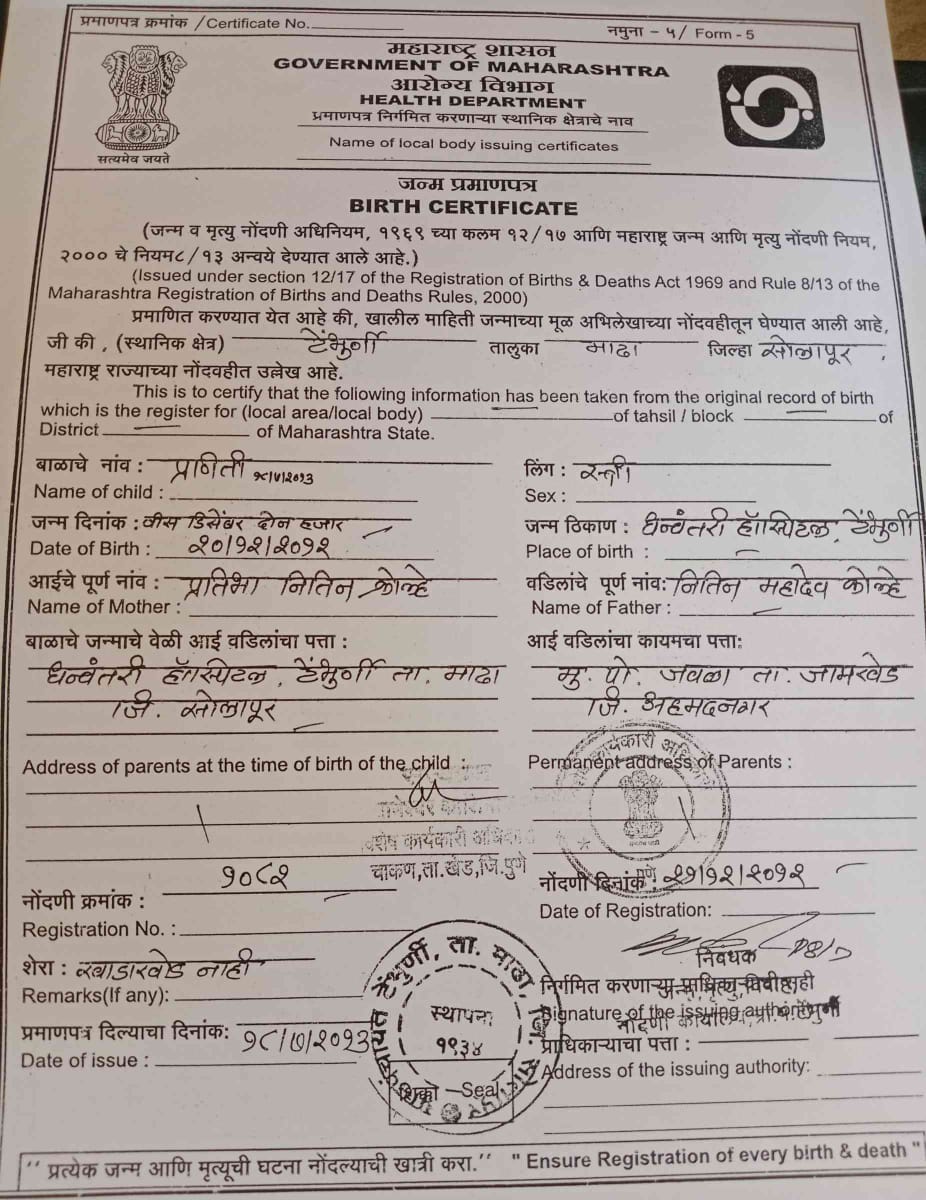 प्रमाणपत्र क्रमांक / Certificate No.
नमुना - ५ / Form - 5
महाराष्ट्र शासन
GOVERNMENT OF MAHARASHTRA
आरोग्य विभाग
HEALTH DEPARTMENT
प्रमाणपत्र निर्गमित करणाऱ्या स्थानिक क्षेत्राचे नाव
Name of local body issuing certificates
सत्यमेव जयते
जन्म प्रमाणपत्र
BIRTH CERTIFICATE
(जन्म व मृत्यु नोंदणी अधिनियम, १९६९ च्या कलम १२/१७ आणि महाराष्ट्र जन्म आणि मृत्यु नोंदणी नियम,
२००० चे नियम८/१३ अन्वये देण्यात आले आहे.)
(Issued under section 12/17 of the Registration of Births & Deaths Act 1969 and Rule 8/13 of the
Maharashtra Registration of Births and Deaths Rules, 2000)
प्रमाणित करण्यात येत आहे की, खालील माहिती जन्माच्या मूळ अभिलेखाच्या नोंदवहीतून घेण्यात आली आहे,
जी की, (स्थानिक क्षेत्र) टेंभुर्णी तालुका माढा जिल्हा सोलापूर,
महाराष्ट्र राज्याच्या नोंदवहीत उल्लेख आहे.
This is to certify that the following information has been taken from the original record of birth
which is the register for (local area/local body) of tahsil / block of
District of Maharashtra State.
बाळाचे नांव : प्रणिती १८/७/२०१३ लिंग : स्त्री
Name of child : Sex :
जन्म दिनांक : वीस डिसेंबर दोन हजार जन्म ठिकाण : धन्वंतरी हॉस्पिटल, टेंभुर्णी
Date of Birth : २०/१२/२०१२ Place of birth :
आईचे पूर्ण नांव : प्रतिभा नितिन कोल्हे वडिलांचे पूर्ण नांव: नितिन महादेव कोल्हे
Name of Mother : Name of Father :
बाळाचे जन्माचे वेळी आई वडिलांचा पत्ता : आई वडिलांचा कायमचा पत्ता:
धन्वंतरी हॉस्पिटल, टेंभुर्णी ता. माढा मु. पो. जवळा ता. जामखेड
जि. सोलापूर जि. अहमदनगर
Address of parents at the time of birth of the child : Permanent address of Parents :
विशेष कार्यकारी अधिकारी
चाकण,ता.खेड,जि.पुणे
१०८२ नोंदणी दिनांक : २१/१२/२०१२
नोंदणी क्रमांक : Date of Registration:
Registration No. :
शेरा : खाडाखोड नाही निबंधक
Remarks(If any): निर्गमित करणाऱ्या
Signature of the issuing authority
प्रमाणपत्र दिल्याचा दिनांक: १८/७/२०१३ प्राधिकाऱ्याचा पत्ता :
Date of issue : Address of the issuing authority:
टेंभुर्णी, ता. माढा,
स्थापना
१९३४
शिक्का - Seal
" प्रत्येक जन्म आणि मृत्यूची घटना नोंदल्याची खात्री करा." " Ensure Registration of every birth & death "